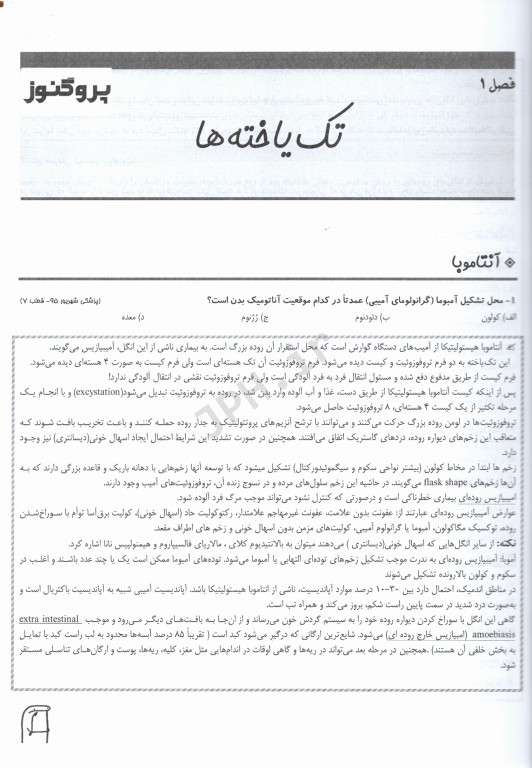 فصل ۱
پروگنوز
تک یاخته ها
آنتاموبا
۱- محل تشکیل آمبوما (گرانولومای آمیبی) عمدتاً در کدام موقعیت آناتومیک بدن است؟ (پزشکی شهریور ۹۵- قطب ۷)
الف) کولون ب) دئودنوم ج) ژژنوم د) معده
آنتاموبا هیستولیتیکا از آمیب‌های دستگاه گوارش است که محل استقرار آن روده بزرگ است. به بیماری ناشی از این انگل، آمیبیازیس می‌گویند.
این تک‌یاخته به دو فرم تروفوزوئیت و کیست دیده می‌شود. فرم تروفوزوئیت آن تک هسته‌ای است ولی فرم کیست به صورت ۴ هسته‌ای دیده می‌شود.
فرم کیست از طریق مدفوع دفع شده و مسئول انتقال فرد به فرد آلودگی است ولی فرم تروفوزوئیت نقشی در انتقال آلودگی ندارد!
پس از اینکه کیست آنتاموبا هیستولیتیکا از طریق دست، غذا و آب آلوده وارد بدن شد، در روده به تروفوزوئیت تبدیل می‌شود(excystation) و با انجام یک
مرحله تکثیر از یک کیست ۴ هسته‌ای، ۸ تروفوزوئیت حاصل می‌شود.
تروفوزوئیت‌ها در لومن روده بزرگ حرکت می‌کنند و می‌توانند با ترشح آنزیم‌های پروتئولیتیک به جدار روده حمله کنند و باعث تخریب بافت شوند که
متعاقب این زخم‌های دیواره روده، دردهای گاستریک اتفاق می‌افتند. همچنین در صورت تشدید این شرایط احتمال ایجاد اسهال خونی(دیسانتری) نیز وجود
دارد.
زخم ها ابتدا در مخاط کولون (بیشتر نواحی سکوم و سیگموئیدورکتال) تشکیل میشود که با توسعه آنها زخم‌هایی با دهانه باریک و قاعده بزرگی دارند که به
آن‌ها زخم‌های flask shape می‌گویند. در حاشیه این زخم سلول‌های مرده و در نسوج زنده آن، تروفوزوئیت‌های آمیب وجود دارند.
آمیبیازیس روده‌ای بیماری خطرناکی است و درصورتی که کنترل نشود می‌تواند موجب مرگ فرد آلوده شود.
عوارض آمیبیازیس روده‌ای عبارتند از: عفونت بدون علامت، عفونت غیرمهاجم علامتدار، رکتوکولیت حاد (اسهال خونی)، کولیت برق‌آسا توأم با سوراخ‌شدن
روده، توکسیک مگاکولون، آمبوما یا گرانولوم آمیبی، کولیت‌های مزمن بدون اسهال خونی و زخم های اطراف مقعد.
نکته: از سایر انگل‌هایی که اسهال خونی(دیسانتری ) می‌دهند میتوان به بالانتیدیوم کلای ، مالاریای فالسیپاروم و هیمنولپیس نانا اشاره کرد.
آمبوما: آمیبیازیس روده‌ای به ندرت موجب تشکیل زخم‌های توده‌ای التهابی یا آمبوما می‌شود. توده‌های آمبوما ممکن است یک یا چند عدد باشند و اغلب در
سکوم و کولون بالارونده تشکیل می‌شوند
در مناطق اندمیک، احتمال دارد بین ۳۰-۱۰ درصد موارد آپاندیسیت، ناشی از آنتاموبا هیستولیتیکا باشد. آپاندیسیت آمیبی شبیه به آپاندیسیت باکتریال است و
به‌صورت درد شدید در سمت پایین راست شکم، بروز می‌کند و همراه تب است.
گاهی این انگل با سوراخ کردن دیواره روده خود را به سیستم گردش خون می‌رساند و از آن‌جا به بافت‌های دیگر می‌رود و موجب extra intestinal
amoebiasis (آمیبیازیس خارج روده ای) می‌شود. شایع‌ترین ارگانی که درگیر می‌شود کبد است ( تقریباً ۸۵ درصد آبسه‌ها محدود به لب راست کبد با تمایل
به بخش خلفی آن هستند) .همچنین در مرحله بعد می‌تواند در ریه‌ها و گاهی اوقات در اندام‌هایی مثل مغز، کلیه، ریه‌ها، پوست و ارگان‌های تناسلی مستقر
شود.